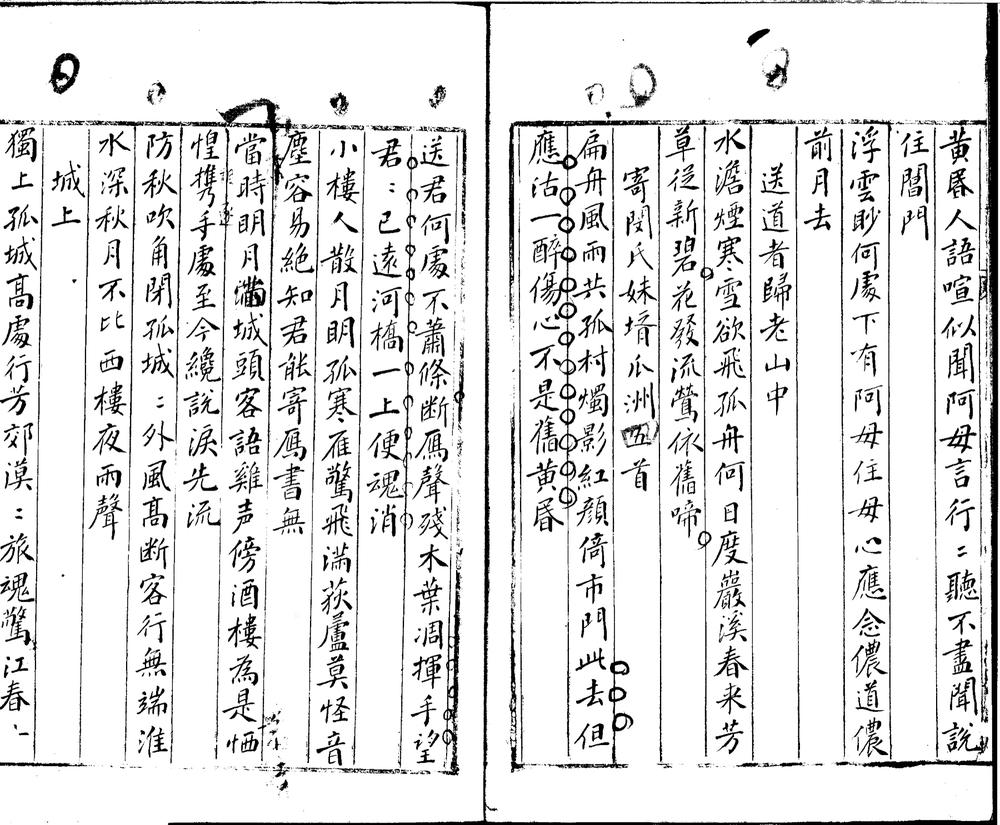 黃昏人語喧似聞阿母言行〻聽不盡聞說
住閶門
浮雲眇何處下有阿母住母心應念儂道儂
前月去
送道者歸老山中
水澹煙寒雪欲飛孤舟何日度巖溪春来芳
草從新碧花發流鶯依舊啼
寄閔氏妹壻瓜洲五首
扁舟風雨共孤村燭影紅顏倚市門此去但
應沽一醉傷心不是舊黃昏
送君何處不蕭條断鴈聲殘木葉凋揮手望
君〻已遠河橋一上便魂消
小樓人散月明孤寒雁驚飛滿荻蘆莫怪音
塵容易絕知君能寄鴈書無
當時明月滿城頭客語雞声傍酒樓為是恓
惶携手處至今纔說淚先流
防秋吹角閉孤城〻外風高断客行無端淮
水深秋月不比西樓夜雨聲
城上
獨上孤城高處行芳郊漠〻旅魂驚江春〻